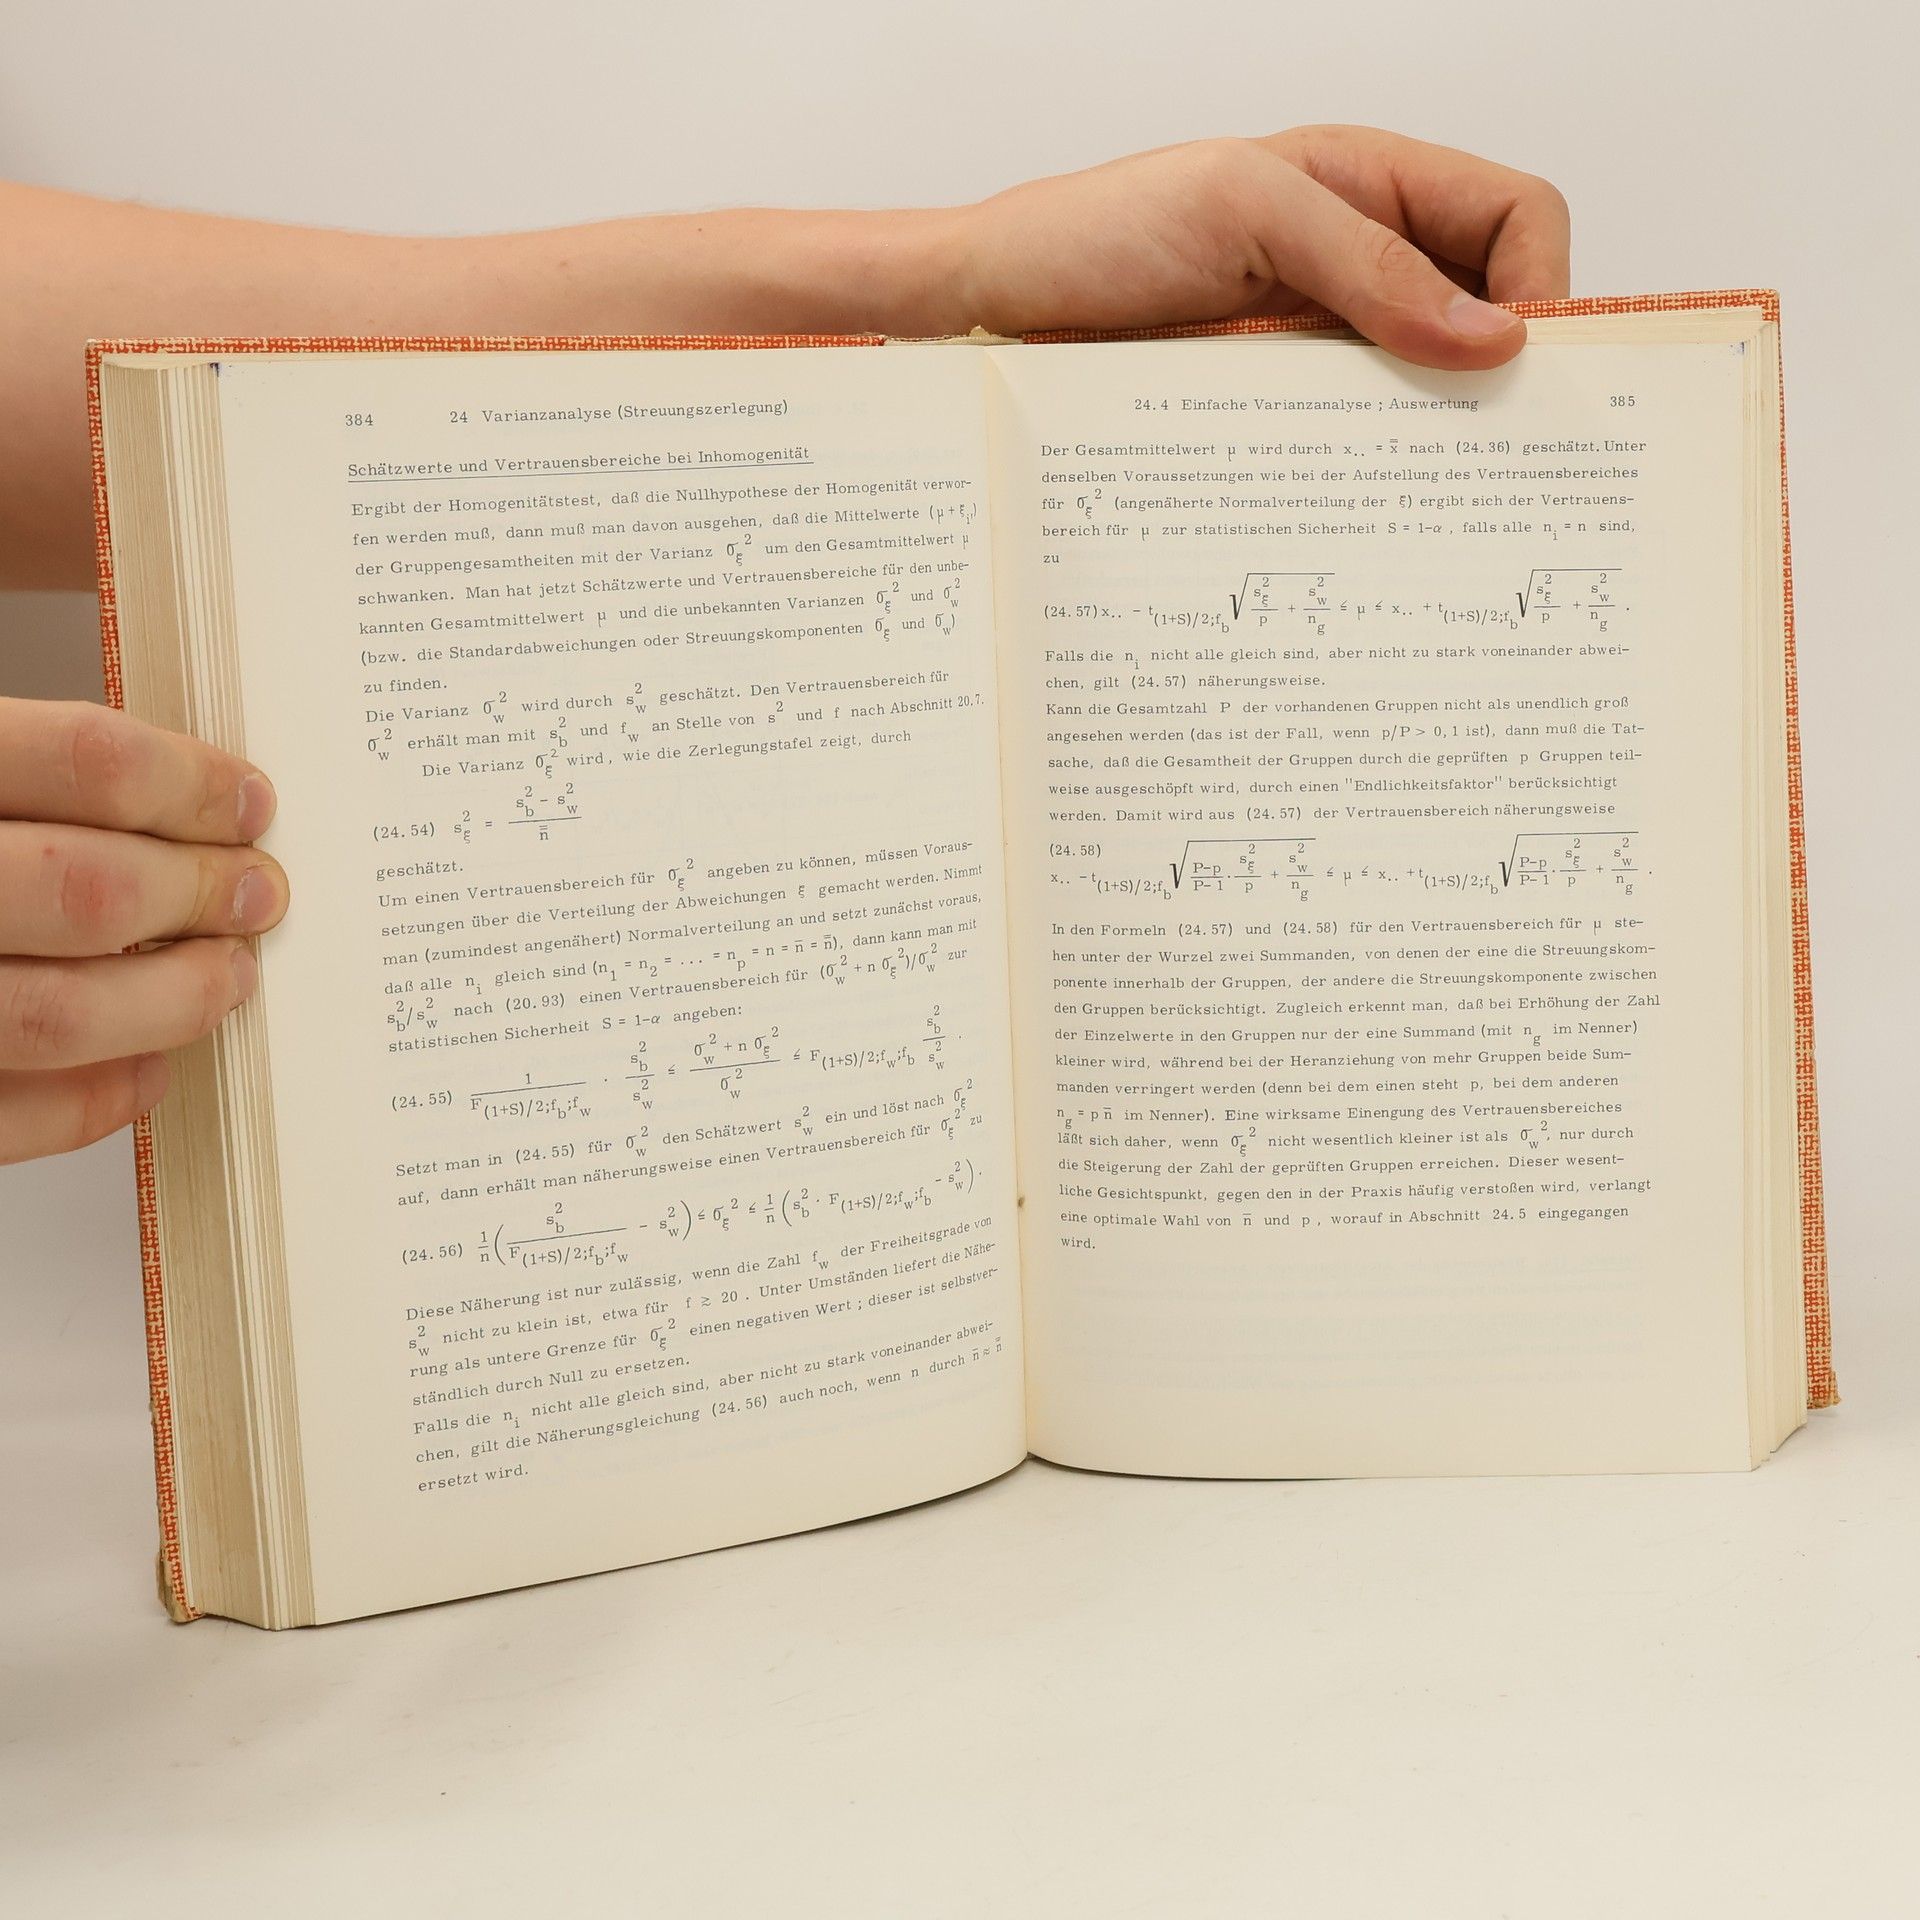 384 24 Varianzanalyse (Streuungszerlegung)
Schätzwerte und Vertrauensbereiche bei Inhomogenität
Ergibt der Homogenitätstest, daß die Nullhypothese der Homogenität verwor-
fen werden muß, dann muß man davon ausgehen, daß die Mittelwerte (μ + ξ_i)
der Gruppengesamtheiten mit der Varianz σ_ξ² um den Gesamtmittelwert μ
schwanken. Man hat jetzt Schätzwerte und Vertrauensbereiche für den unbe-
kannten Gesamtmittelwert μ und die unbekannten Varianzen σ_ξ² und σ_w²
(bzw. die Standardabweichungen oder Streuungskomponenten σ_ξ und σ_w)
zu finden.
Die Varianz σ_w² wird durch s_w² geschätzt. Den Vertrauensbereich für
σ_w² erhält man mit s_b² und f_w an Stelle von s² und f nach Abschnitt 20.7.
Die Varianz σ_ξ² wird, wie die Zerlegungstafel zeigt, durch
(24.54) s_ξ² = (s_b² - s_w²) / n̿
geschätzt.
Um einen Vertrauensbereich für σ_ξ² angeben zu können, müssen Voraus-
setzungen über die Verteilung der Abweichungen ξ gemacht werden. Nimmt
man (zumindest angenähert) Normalverteilung an und setzt zunächst voraus,
daß alle n_i gleich sind (n_1 = n_2 = ... = n_p = n = n̄ = n̿), dann kann man mit
s_b²/s_w² nach (20.93) einen Vertrauensbereich für (σ_w² + n σ_ξ²)/σ_w² zur
statistischen Sicherheit S = 1-α angeben:
(24.55) 1 / F_(1+S)/2;f_b;f_w · s_b² / s_w² ≤ (σ_w² + n σ_ξ²) / σ_w² ≤ F_(1+S)/2;f_w;f_b s_b² / s_w² .
Setzt man in (24.55) für σ_w² den Schätzwert s_w² ein und löst nach σ_ξ²
auf, dann erhält man näherungsweise einen Vertrauensbereich für σ_ξ² zu
(24.56) 1/n (s_b² / F_(1+S)/2;f_b;f_w - s_w²) ≤ σ_ξ² ≤ 1/n (s_b² · F_(1+S)/2;f_w;f_b - s_w²).
Diese Näherung ist nur zulässig, wenn die Zahl f_w der Freiheitsgrade von
s_w² nicht zu klein ist, etwa für f ≳ 20. Unter Umständen liefert die Nähe-
rung als untere Grenze für σ_ξ² einen negativen Wert ; dieser ist selbstver-
ständlich durch Null zu ersetzen.
Falls die n_i nicht alle gleich sind, aber nicht zu stark voneinander abwei-
chen, gilt die Näherungsgleichung (24.56) auch noch, wenn n durch n̄ ≈ n̿
ersetzt wird.
24.4 Einfache Varianzanalyse ; Auswertung 385
Der Gesamtmittelwert μ wird durch x.. = x̿ nach (24.36) geschätzt. Unter
denselben Voraussetzungen wie bei der Aufstellung des Vertrauensbereiches
für σ_ξ² (angenäherte Normalverteilung der ξ) ergibt sich der Vertrauens-
bereich für μ zur statistischen Sicherheit S = 1-α , falls alle n_i = n sind,
zu
(24.57) x.. - t_(1+S)/2;f_b √(s_ξ²/p + s_w²/n_g) ≤ μ ≤ x.. + t_(1+S)/2;f_b √(s_ξ²/p + s_w²/n_g) .
Falls die n_i nicht alle gleich sind, aber nicht zu stark voneinander abwei-
chen, gilt (24.57) näherungsweise.
Kann die Gesamtzahl P der vorhandenen Gruppen nicht als unendlich groß
angesehen werden (das ist der Fall, wenn p/P > 0,1 ist), dann muß die Tat-
sache, daß die Gesamtheit der Gruppen durch die geprüften p Gruppen teil-
weise ausgeschöpft wird, durch einen "Endlichkeitsfaktor" berücksichtigt
werden. Damit wird aus (24.57) der Vertrauensbereich näherungsweise
(24.58)
x.. - t_(1+S)/2;f_b √((P-p)/(P-1) · s_ξ²/p + s_w²/n_g) ≤ μ ≤ x.. + t_(1+S)/2;f_b √((P-p)/(P-1) · s_ξ²/p + s_w²/n_g) .
In den Formeln (24.57) und (24.58) für den Vertrauensbereich für μ ste-
hen unter der Wurzel zwei Summanden, von denen der eine die Streuungskom-
ponente innerhalb der Gruppen, der andere die Streuungskomponente zwischen
den Gruppen berücksichtigt. Zugleich erkennt man, daß bei Erhöhung der Zahl
der Einzelwerte in den Gruppen nur der eine Summand (mit n_g im Nenner)
kleiner wird, während bei der Heranziehung von mehr Gruppen beide Sum-
manden verringert werden (denn bei dem einen steht p, bei dem anderen
n_g = p n̄ im Nenner). Eine wirksame Einengung des Vertrauensbereiches
läßt sich daher, wenn σ_ξ² nicht wesentlich kleiner ist als σ_w², nur durch
die Steigerung der Zahl der geprüften Gruppen erreichen. Dieser wesent-
liche Gesichtspunkt, gegen den in der Praxis häufig verstoßen wird, verlangt
eine optimale Wahl von n̄ und p , worauf in Abschnitt 24.5 eingegangen
wird.